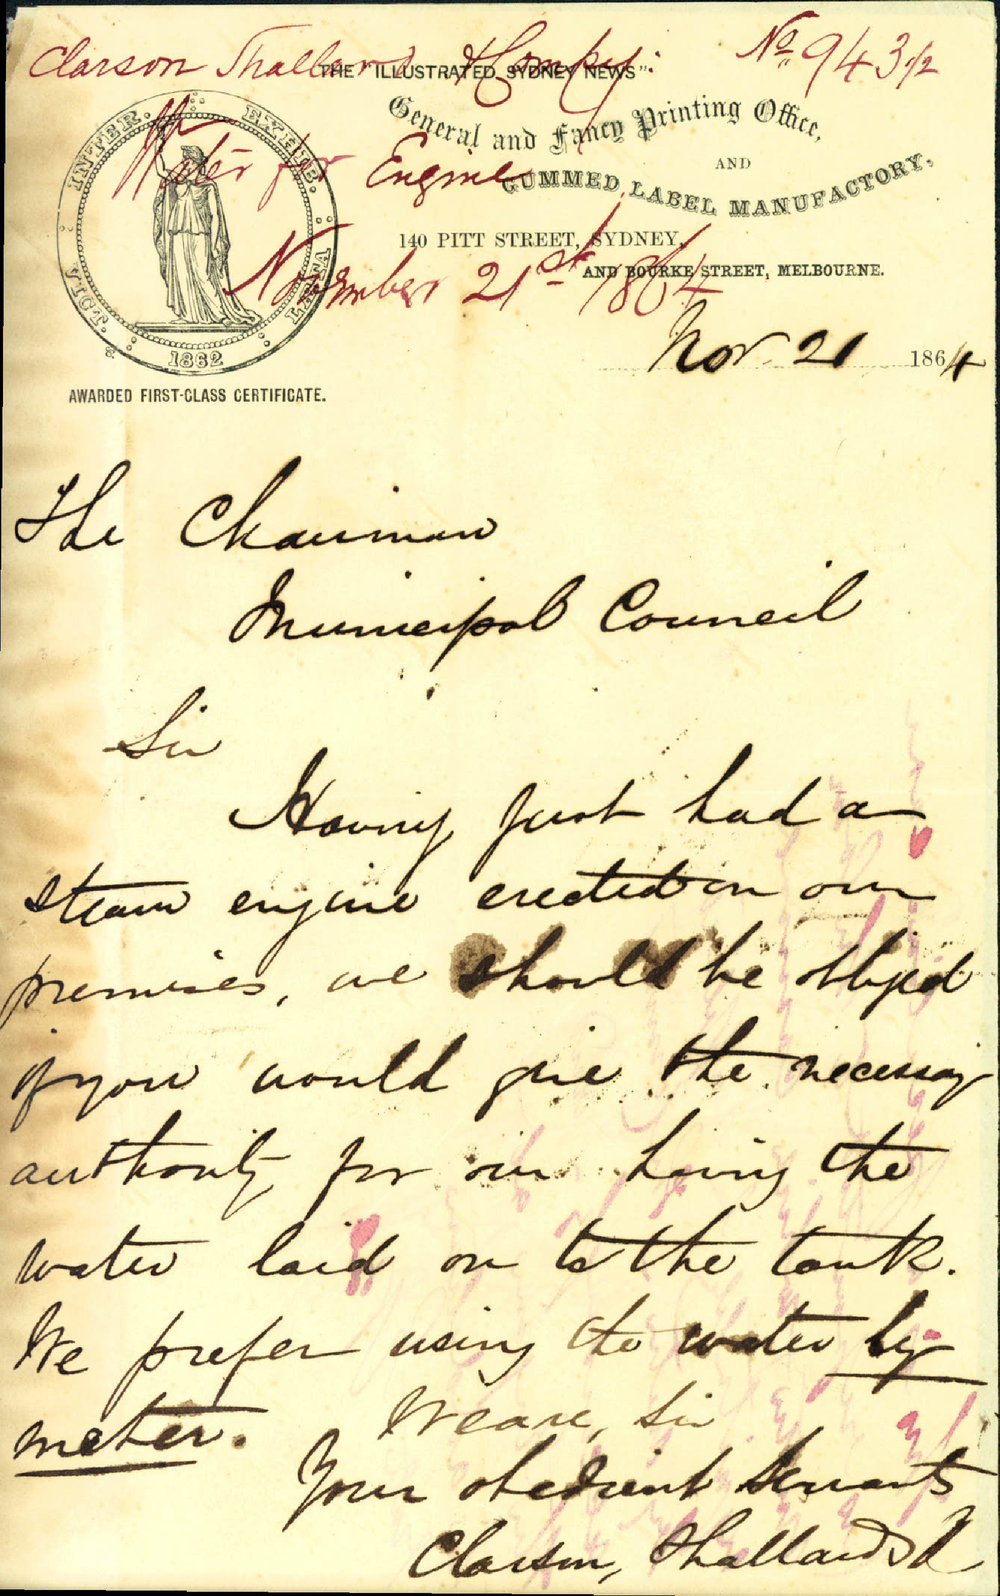 Clarson Shallard & Compy: No. 943 1/2
"THE ILLUSTRATED SYDNEY NEWS"
General and Fancy Printing Office,
Water for Engine
AND
GUMMED LABEL MANUFACTORY,
140 PITT STREET, SYDNEY,
AND BOURKE STREET, MELBOURNE.
November 21st 1864
INTER. EXHIB.
VICT. LATA
1862
AWARDED FIRST-CLASS CERTIFICATE.
Nov. 21 1864
The Chairman
Municipal Council
Sir
Having just had a
steam engine erected on our
premises, we should be obliged
if you would give the necessary
authority for our having the
water laid on to the tank.
We prefer using the water by
meter. We are, Sir
Your obedient Servants
Clarson, Shallard &